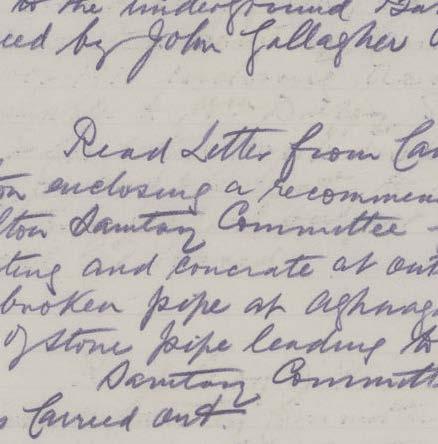 to the underground
ced by John Gallagher
Read Letter from Car
on enclosing a recommen
lton Sanitary Committee
ting and concrete at out
broken pipe at Aghnag
of stone pipe leading to
Sanitary Committ
s Carried out.